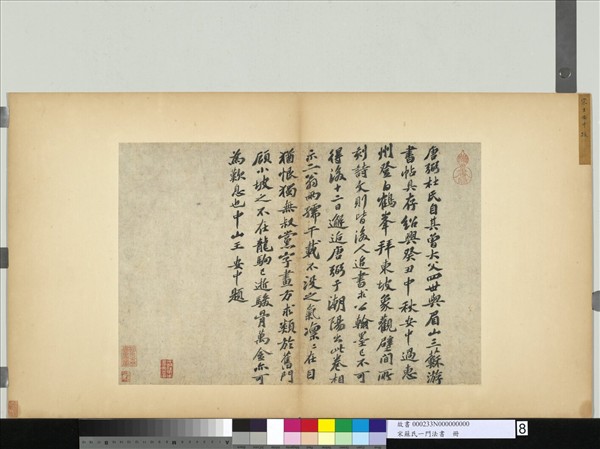 唐弼杜氏自其曾大父四世與眉山三蘇游
書帖具存紹興癸丑中秋安中過惠
州登白鶴峯拜東坡象觀壁間所
刻詩文則皆後人追書求公翰墨已不可
得後十二日邂逅唐弼于潮陽出此卷相
示二翁兩孺千載不沒之氣凜〻在目
猶恨獨無叔黨字畫方求類於舊門
顧小坡之不在龍駒已逝駿骨萬金亦可
為歎息也中山王安中題
故書 000233N000000000
宋蘇氏一門法書 冊
8